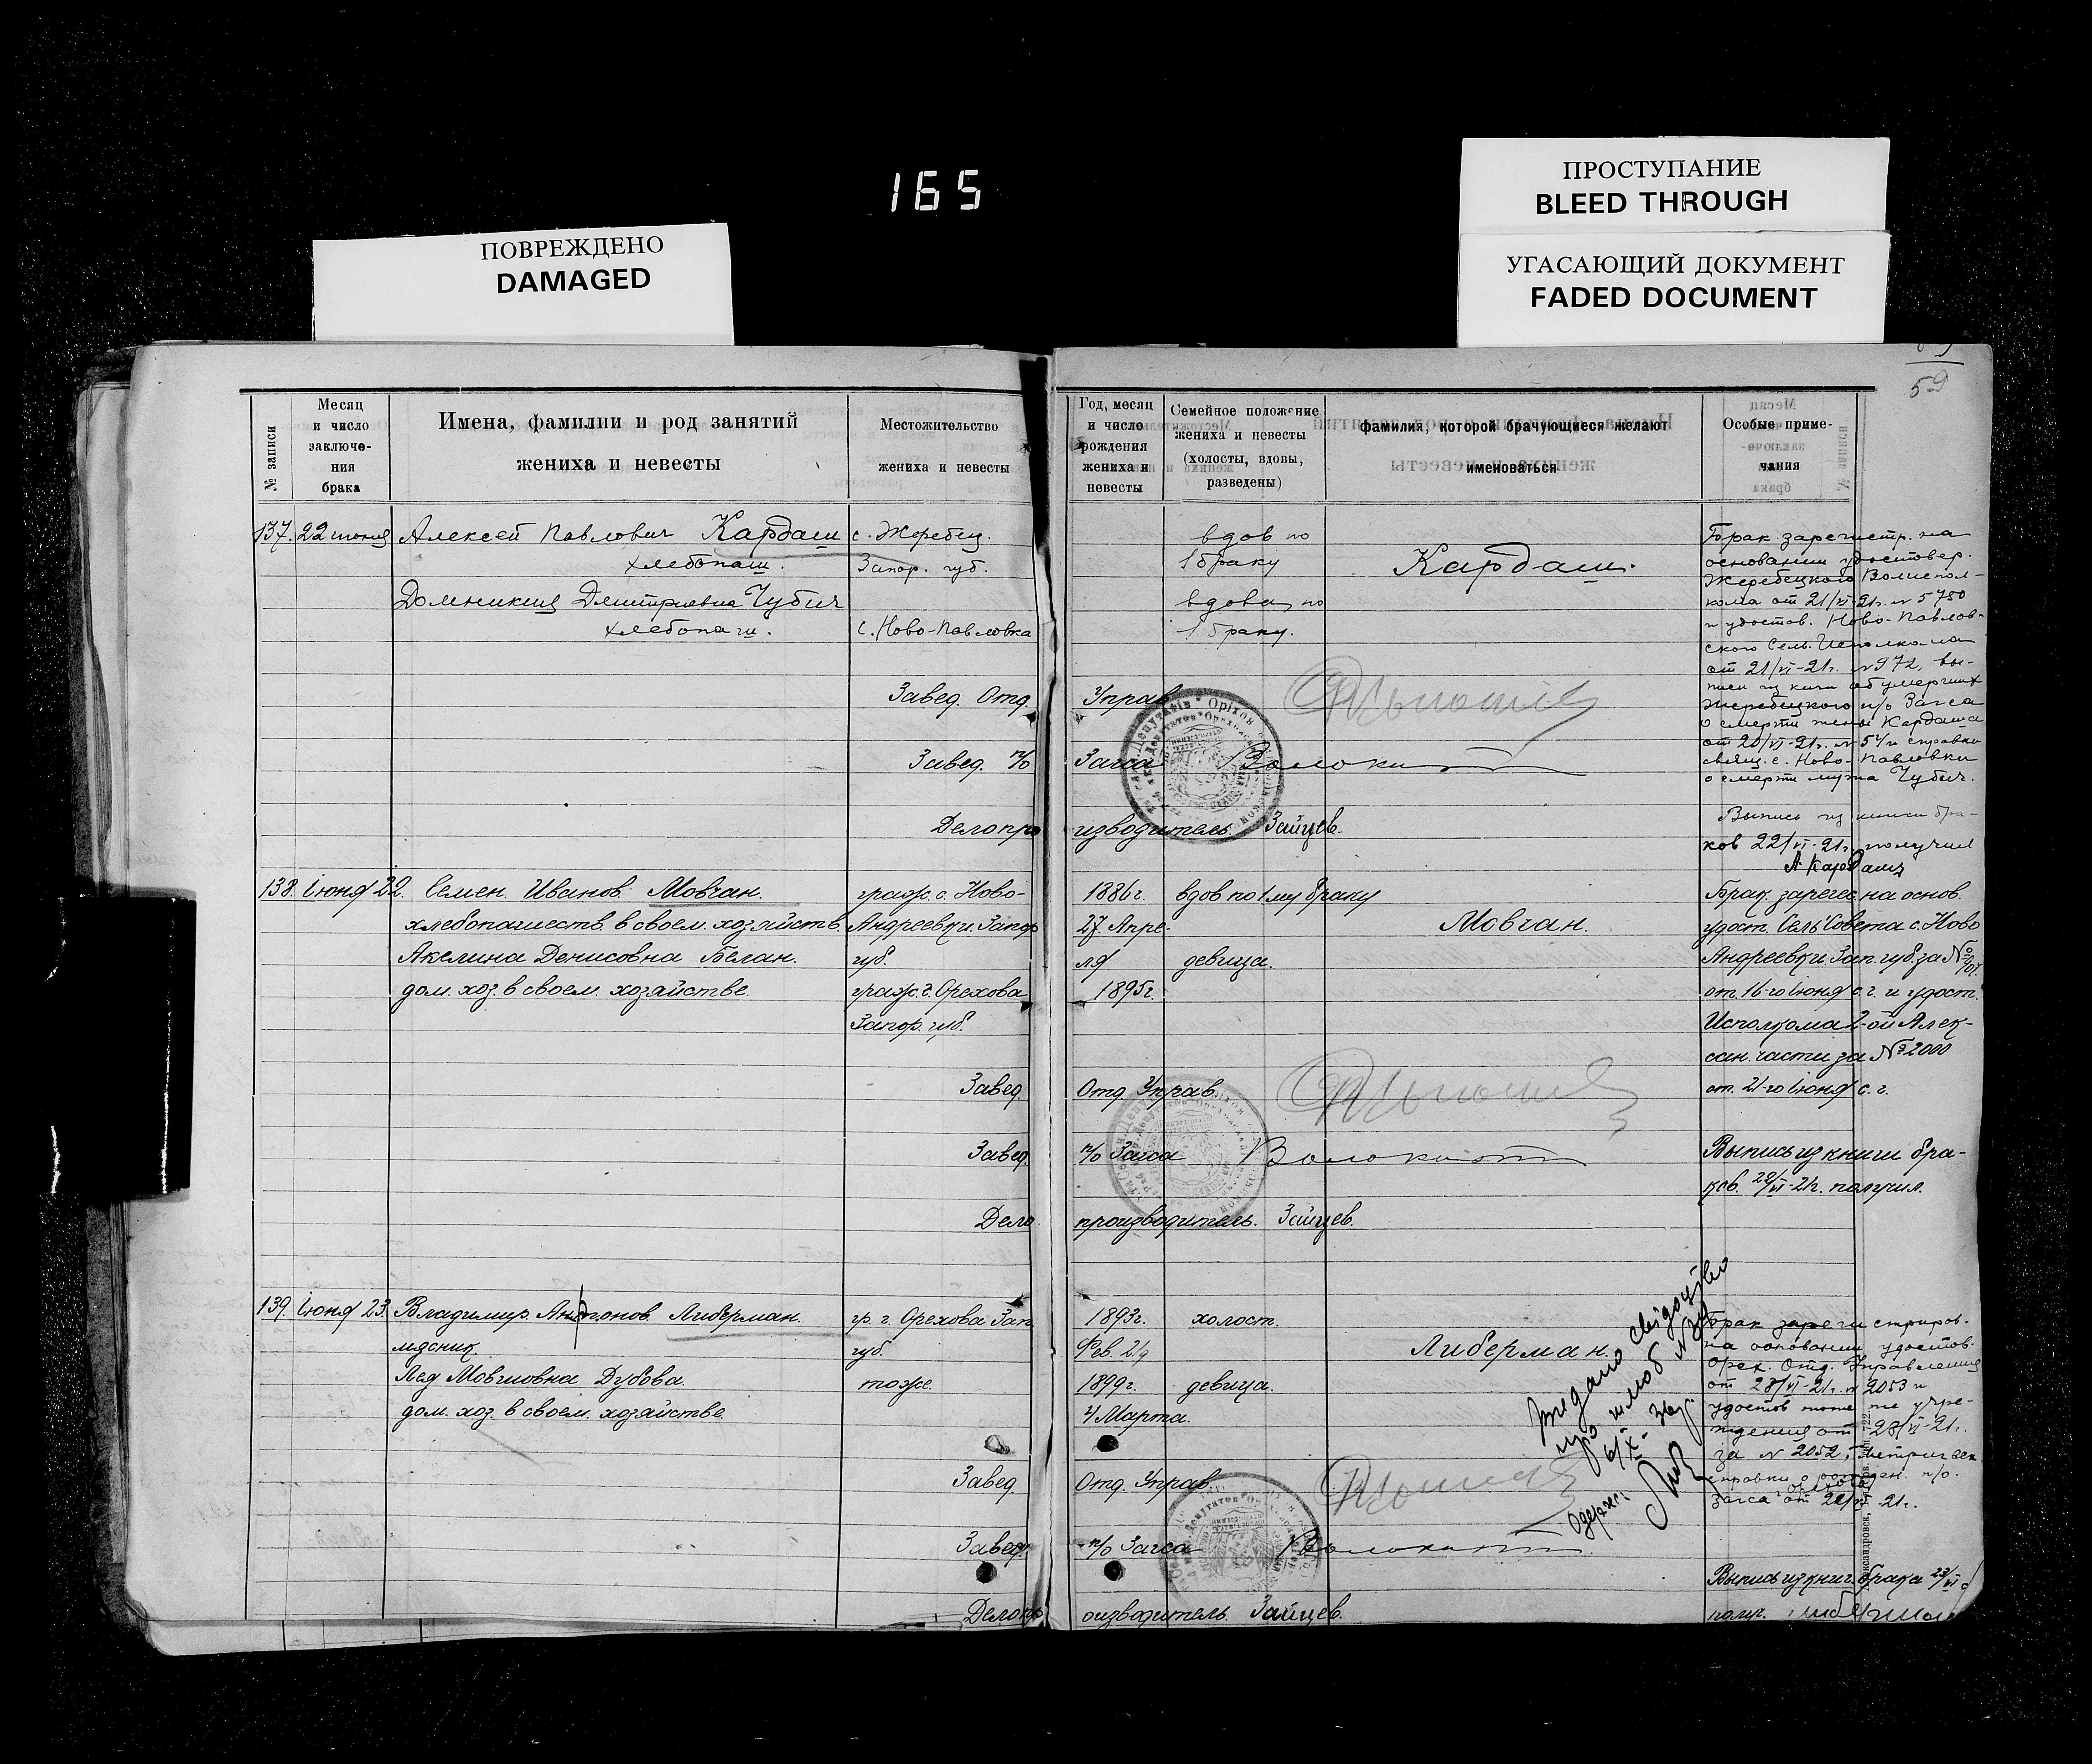 165
ПРОСТУПАНИЕ
BLEED THROUGH
ПОВРЕЖДЕНО
DAMAGED
УГАСАЮЩИЙ ДОКУМЕНТ
FADED DOCUMENT
59
№ записи
Месяц
и число
заключе-
ния
брака
Имена, фамилии и род занятий
жениха и невесты
Местожительство
жениха и невесты
Год, месяц
и число
рождения
жениха и
невесты
Семейное положение
жениха и невесты
(холосты, вдовы,
разведены)
фамилия, которой брачующиеся желают
именоваться
Особые приме-
чания
137. 22 июня
Алексей Павлович Кардаш
хлебопаш.
Домникия Дмитриевна Чубич
хлебопаш.
с. Жеребец.
Запор. губ.
с. Ново-Павловка
вдов по
1 браку
вдова по
1 браку.
Кардаш.
Брак зарегистр. на
основании удостовер.
Жеребецкого Волиспол-
кома от 21/VI-21г. № 5780
и удостов. Ново-Павлов-
ского Сель. Исполкома
от 21/VI-21г. № 972, вы-
писи из книги об умерших
Жеребецкого п/о Загса
о смерти жены Кардаша
от 20/VI-21г. № 54 и справки
свящ. с. Ново-Павловки
о смерти мужа Чубич.
Выпись из книги бра-
ков 22/VI-21г. получил
А Кардаш
Завед. Отд. Управ.
Завед. п/о Загса
Делопроизводитель. Зайцев.
138. Июня 22.
Семен. Иванов. Мовчан.
хлебопашеств. в своем. хозяйств.
Акелина Денисовна Белан.
дом. хоз. в своем. хозяйстве.
граж. с. Ново-
Андреевки. Запор
губ.
граж. г. Орехова
Запор. губ.
1886г.
27. Апре-
ля
1895г.
вдов по 1му браку
девица.
Мовчан.
Брак. зарегес. на основ.
удост. Сель Совета с. Ново
Андреевки. Зап. губ. за №
от. 16-го Июня с. г. и удост.
Исполкома 2-ой Алек-
сан. части за № 2000
от. 21-го Июня с. г.
Выпись из книги бра-
ков. 22/VI-21г. получил.
Завед. Отд. Управ.
Завед. п/о Загса
Делопроизводитель. Зайцев.
139. Июня 23.
Владимир. Антонов. Либерман.
мясник.
Лея Мовшовна Дубова.
дом. хоз. в своем. хозяйстве.
гр. г. Орехова Зап
губ.
тоже.
1893г.
Фев. 21
1899г.
4 Марта.
холост.
девица.
Либерман.
видано свідоцтво
про шлюб №
Одерж:
Брак зарегистриров-
на основании удостов.
Орех. Отд. Управления
от 23/VI-21г. № 2053 и
удостов того же учре-
ждения от 23/VI-21г.
за № 2052, метрическ
справки о рожден. п/о.
Загса от 22/VI 21г.
Выпись из книг. брака 23/VI
получ.
Завед. Отд. Управ.
Завед. п/о Загса
Делопроизводитель. Зайцев.